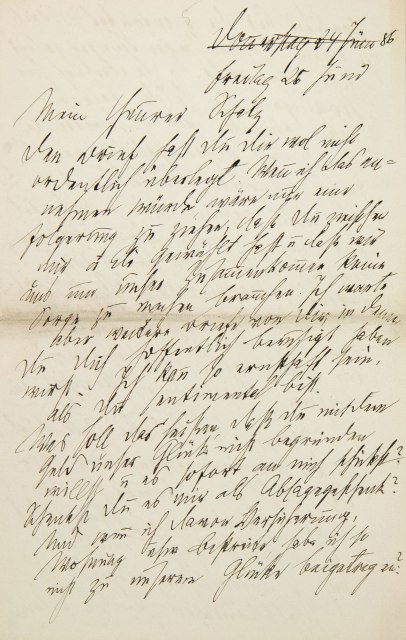 Donnerstag 24 Juni 86
Freitag 25 Juni
Mein theurer Schatz
Den Brief hast du dir wol nicht
ordentlich überlegt. Wenn ich das an-
nehmen würde, wäre nur eine
Folgerung zu ziehen, dass du zwischen
mir u dir gewählt hast u dass wir
uns um unser Zusammenkommen keine
Sorge zu machen brauchen. Ich warte
aber weitere Briefe von dir in denen
du dich hoffentlich beruhigt haben
wirst. Ich kann so ernsthaft sein,
als du sentimental bist.
Was soll das heißen, dass du mit dem
Geld unser Glück nicht begründen
willst u es sofort an mich schickst?
Schenkst du es mir als Absagegeschenk?
Und wenn ich davon Versicherung,
Wohnung etc bestreite habe ich so
nicht zu unserem Glücke beigetragen?